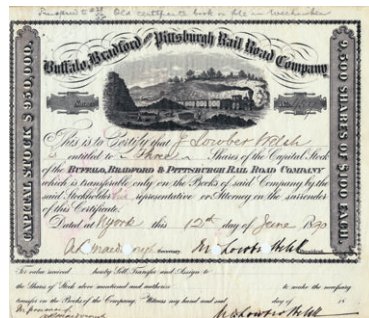 Old certificate book
Buffalo, Bradford and Pittsburgh Rail Road Company
CAPITAL STOCK $950,000.
9,500 SHARES OF $100 EACH.
This is to Certify that J Lowber Welsh
is entitled to Three Shares of the Capital Stock
of the BUFFALO, BRADFORD & PITTSBURGH RAIL ROAD COMPANY
which is transferable only on the Books of said Company by the
said Stockholder representative or Attorney on the surrender
of this Certificate.
Dated at N york this 12th day of June
Secretary
President
For value received hereby Sell, Transfer and Assign to
the Shares of Stock above mentioned and authorize to make the necessary
transfer on the Books of the Company. Witness my hand and seal day of 18
In presence of